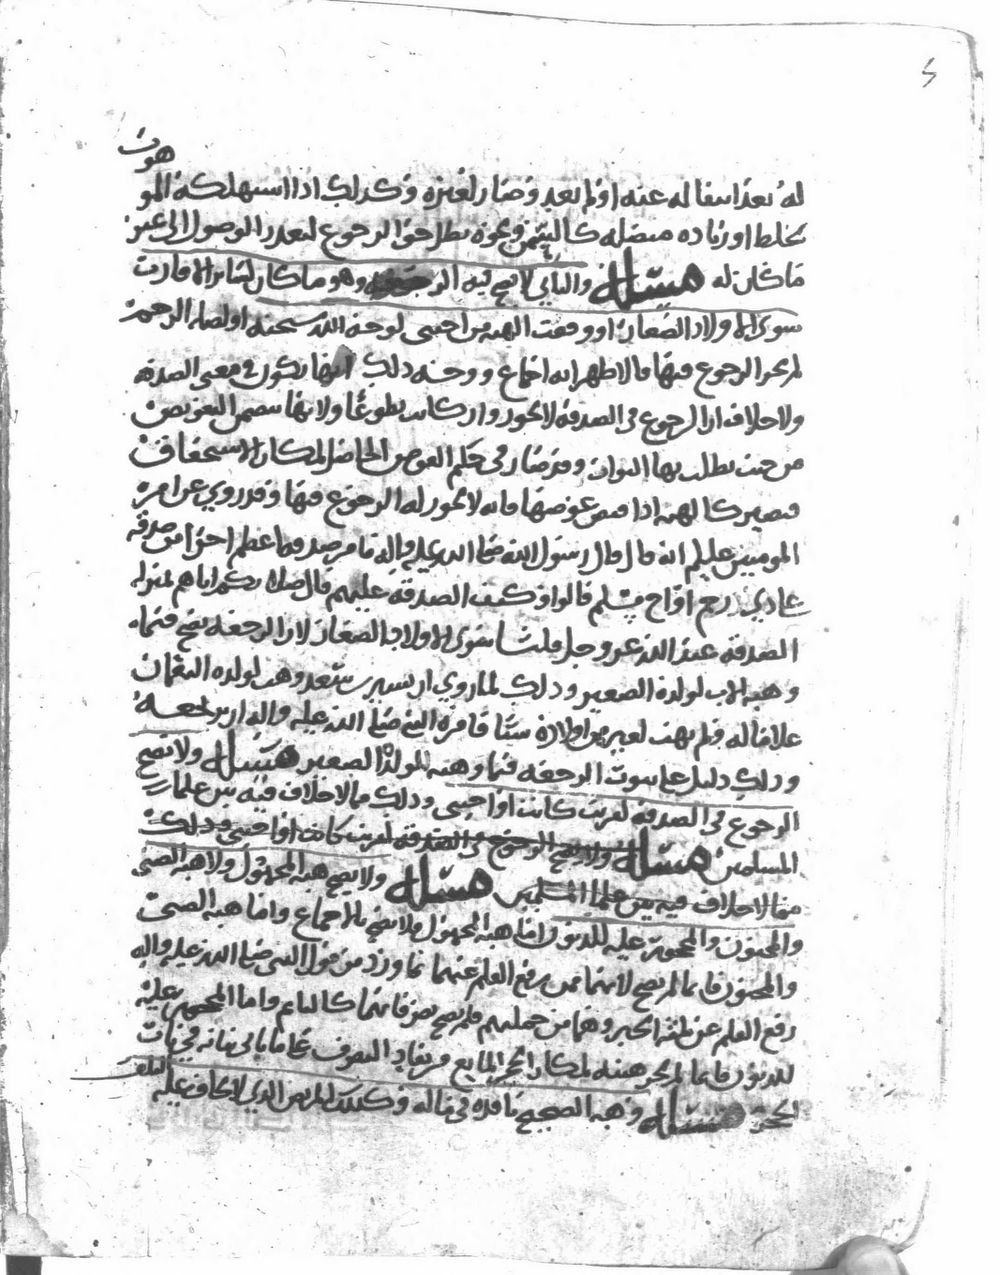 هوب
له بعد انتقاله عنه او لم يعد وصار لغيره وكذلك اذا استهلكه المو
بخلط او زياده متصله كاليتمن ونحوه بطل حق الرجوع لتعذر الوصول الى عين
ما كان له مسئله والثاني لا يصح فيه الرجعه وهو ما كان لسائر الاقارب
سوى الاولاد الصغار او وقعت الهبه من اجنبي لوجه الله سبحنه او لصله الرحم
لم يجز الرجوع فيها فالاظهر انه اجماع ووجه ذلك انها يكون في معنى الصدقه
ولا خلاف ان الرجوع في الصدقه لا يجوز وان كانت تطوعًا ولانها تتضمن التعويض
من حيث يطلب بها الثواب وقد صار في حكم العوض الحاصل لمكان الاستحقاق
فيصير كالهبه اذا قبض عوضها فانه لا يجوز له الرجوع فيها وقد روي عن امير
المومنين عليلم انه قال قال رسول الله صلى الله عليه واله ما من صدقه اعظم اجرا من صدقه
على ذي رحم او اخ مسلم قالوا وكيف الصدقه عليهم قال صلاتكم اياهم بمنزله
الصدقه عند الله عز وجل قلنا سوى الاولاد الصغار لان الرجعه تصح فيما
وهبه الاب لولده الصغير وذلك لما روي ان بشير بن سعد وهب لولده النعمان
غلاما له ولم يهب لغيره من اولاده شيًا فامره النبي صلى الله عليه واله ان يرتجعه
وذلك دليل على ثبوت الرجعه فيما وهبه للولد الصغير مسئله ولا تصح
الرجوع في الصدقه لقريب كانت او اجنبي وذلك مما لا خلاف فيه بين علماء
المسلمين مسئله ولا يصح الرجوع في الصدقه لقريب كانت او اجنبي وذلك
مما لا خلاف فيه بين علما المسلمين مسئله ولا يصح هبه المجهول ولا هبه الصبي
والمجنون والمحجور عليه للديون اما هبه المجهول فلا تصح بالاجماع واما هبه الصبي
والمجنون فانما لم يصح لانهما ممن رفع القلم عنهما لما ورد من قول النبي صلى الله عليه واله
رفع القلم عن ثلثه الخبر وهما من جملتهم فلم يصح تصرفاتهما كالنايم واما المحجور عليه
للديون فانما لم يجز هبته لمكان الحجر المانع من نفاذ التصرف على ما ياتي بيانه في باب
الحجر مسئله وهبه الصحيح نافذه في ماله وكذلك المريض الذي لا يخاف عليه
التلف